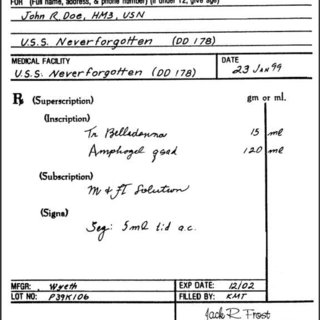 FOR (Full name, address, & phone number) (If under 12, give age)
John R. Doe, HM3, USN
U.S.S. Neverforgotten (DD 178)
MEDICAL FACILITY
U.S.S. Neverforgotten (DD 178)
DATE
23 Jan 99
℞ (Superscription) gm or ml.
(Inscription)
Tr Belladonna 15 ml
Amphogel qsad 120 ml
(Subscription)
M & Ft Solution
(Signa)
Sig: 5ml tid a.c.
MFGR: Wyeth EXP DATE: 12/02
LOT NO: P39K106 FILLED BY: KMT
Jack R. Frost